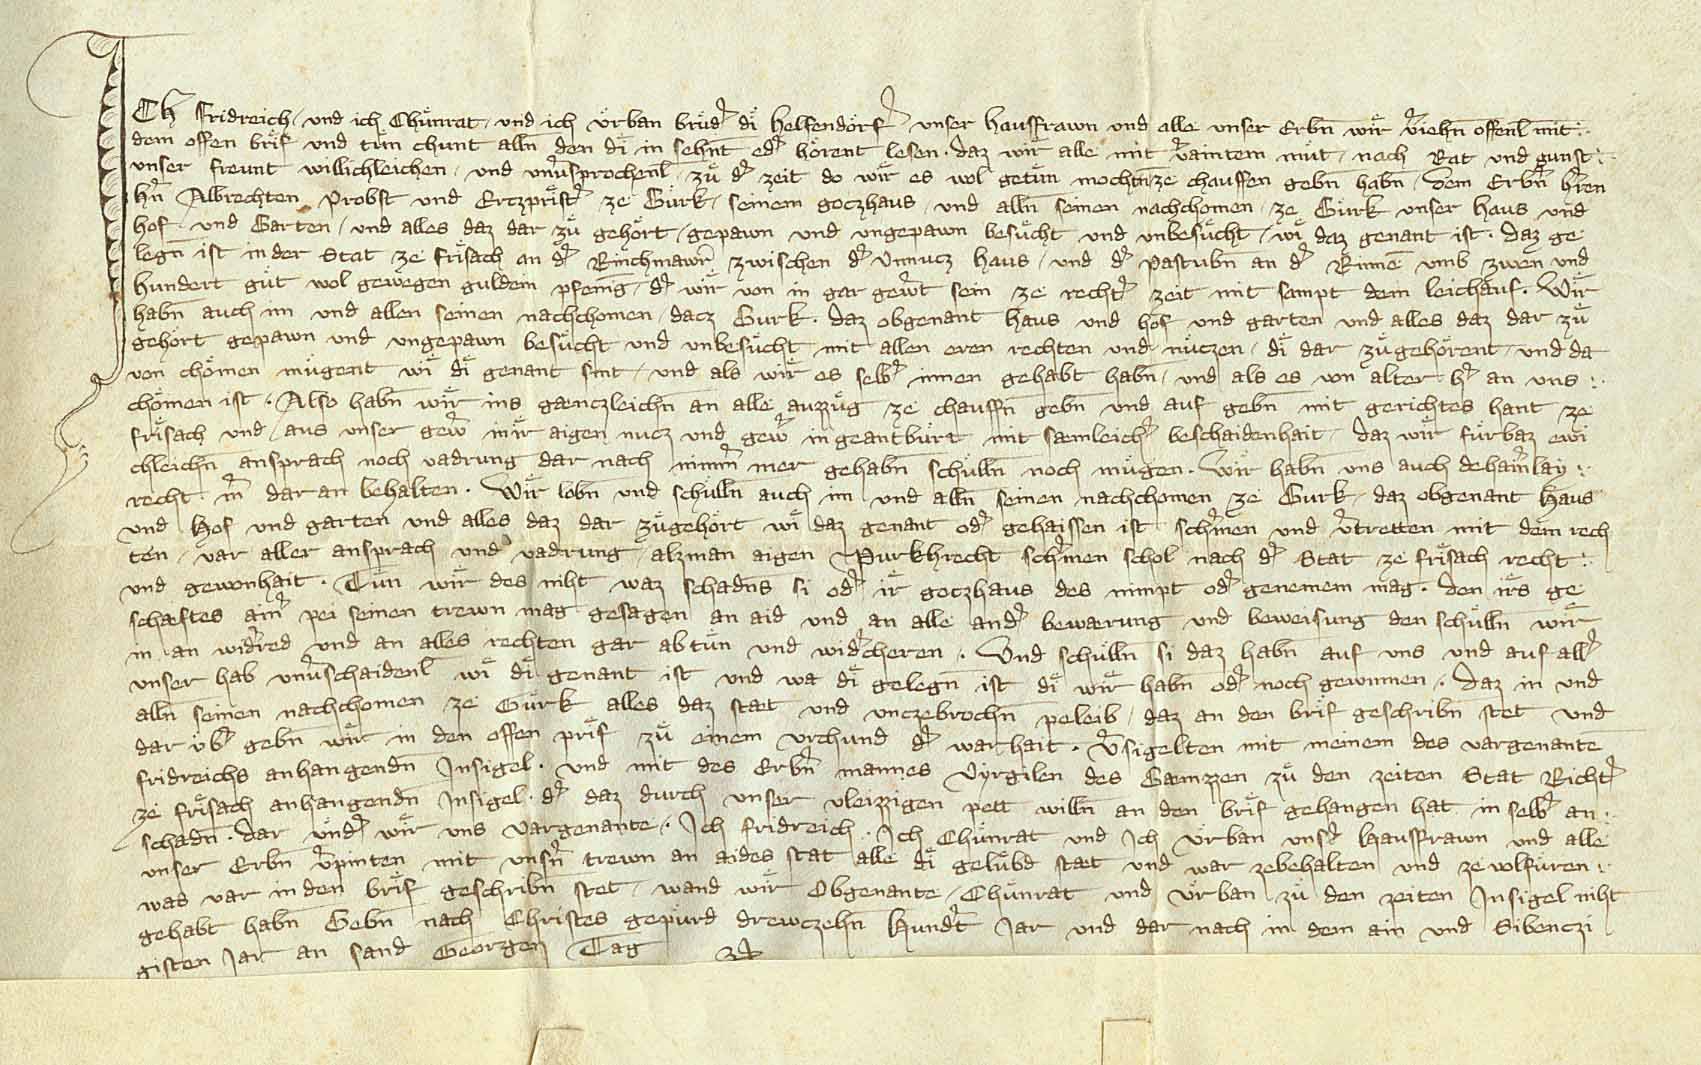 ICh Fridreich und ich Chunrat und ich Vrban brüder di Helfendorfer unser hausfrawn und alle unser Erbn wir veriehn offenl mit
dem offen brif und tün chunt alln den di in sehnt oder hörent lesen daz wir alle mit veraintem müt nach Rat und gunst
unser freunt willichleichen und unversprochenl zü der zeit do wir es wol getün mochtn ze chauffen gebn habn dem Erbern hern
hern Albrechten Probst und Ertzprister ze Gurk seinem goczhaus und alln seinen nachchomen ze Gurk unser haus und
hof und Garten und alles daz dar zü gehört gepawn und ungepawn besücht und unbesücht wi daz genant ist daz ge
legn ist in der Stat ze frisach an der Rinchmawr zwischen der Unnucz haus und der Pastubn an der Rinne umb zwen und
hundert güt wol gewegen guldein pfenig der wir von in gar gewert sein ze rechter zeit mit sampt dem leichauf Wir
habn auch im und allen seinen nachchomen dacz Gurk daz obgenant haus und hof und garten und alles daz dar zü
gehört gepawn und ungepawn besücht und unbesücht mit allen eren rechten und nüczen di dar zügehörent und da
von chömen mügent wi di genant sint und als wir es selber innen gehabt habn und als es von alter her an uns
chömen ist Also habn wir ins gænczleichn an alle auzzüg ze chauffn gebn und auf gebn mit gerichtes hant ze
frisach und aus unser gewer in ir aigen nucz und gewer in geantbürt mit sæmleicher beschaidenhait daz wir fürbaz ewi
chleichn ansprach noch vadrung dar nach nimmer mer gehabn schülln noch mügen Wir habn uns auch dehainerlay
recht mer dar an behalten Wir lobn und schülln auch im und alln seinen nachchomen ze Gurk daz obgenant Haus
und Hof und garten und alles daz dar zügehört wi daz genant oder gehaissen ist schermen und vertretten mit dem rech
ten var aller ansprach und vadrung alzman aigen Purkhrecht schermen schol nach der Stat ze frisach recht
und gewonhait Tün wir des niht waz schadens si oder ir goczhaus des nimpt oder genemem mag den irs ge
schæftes ainer pei seinen trewn mag gesagen an aid und an alle ander bewærung und beweisung den schülln wir
in an widerred und an alles rechten gar abtün und widercheren Und schülln si daz habn auf uns und auf aller
unser hab unverschaidenl wi di genant ist und wa di gelegn ist di wir habn oder noch gewinnen Daz in und
alln seinen nachchomen ze Gurk alles daz stæt und unczebrochn peleib daz an den brif geschribn stet und
dar über gebn wir in den offen prif zü einem urchund der warhait versigelten mit meinem des vargenanten
fridreichs anhangendn Insigel und mit des Erbern mannes Vyrgilen des Gæmzzen zü den zeiten Stat Richter
ze frisach anhangendn Insigel der daz durch unser vleizzigen pett willn an den brif gehangen hat in selber an
schadn dar under wir uns vargenante Ich fridreich Ich Chunrat und Ich Vrban unser Hausfrawn und alle
unser Erbn verpinten mit unsern trewn an aides stat alle di gelübd stæt und war zebehalten und ze volfüren
was var in den brif geschribn stet wand wir Obgenante Chunrat und Vrban zü den zeiten Insigel niht
gehabt habn Gebn nach Christes gepurd drewczehn Hundert Iar und dar nach in dem ain und Sibenczi
gisten Iar an sand Georgen Tag